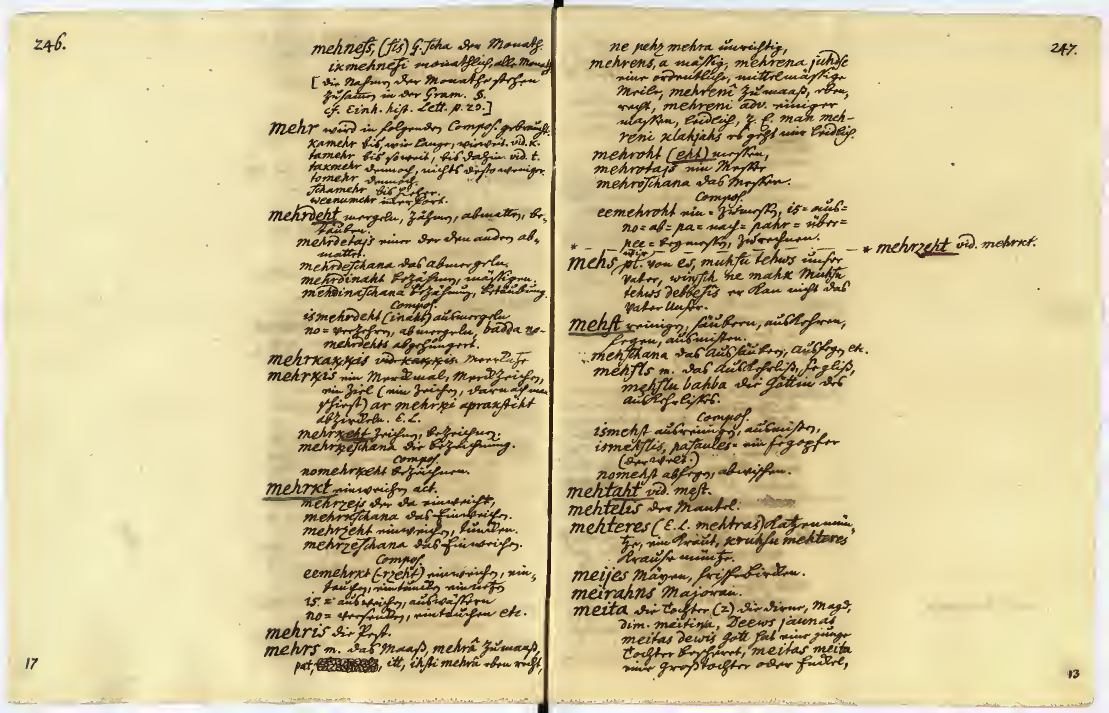 246.
mehness, (sis) G. scha der Monath.
ikmehnesi monathlich, alle Monath
[die Nahmen der Monathe stehen
zusamen in der Gram. §.
cf. Einh. hist. Lett. p. 20.]
mehr wird in folgenden Compos. gebraucht.
kamehr bis, wie lange, wie weit. vid. k.
tamehr bis so weit, bis dahin vid. t.
takmehr dennoch, nichts desto weniger.
tomehr dennoch.
schamehr bis hieher.
weenumehr
mehrdeht mergeln, zähmen, abmatten, be-
täuben.
mehrdetajs einer der den andern ab-
mattet.
mehrdeschana das abmergeln.
mehrdinaht bezähmen, mässigen.
mehrdinaschana bezähmung, betäubung.
Compos.
ismehrdeht (inaht) ausmergeln
no= verzehren, abmergeln, badda no-
mehrdehts abgehungert.
mehrkakkis vid. kakkis. Meerkatze
mehrkis ein Merckmal, Merckzeichen,
ein Ziel (ein Zeichen, darnach man
schiest) ar mehrki aprakstiht
abzirckeln. E. L.
mehrkeht zeichen, bezeichnen.
mehrkeschana die bezeichnung.
Compos.
nomehrkeht bezeichnen.
mehrkt einweichen act.
mehrzejs der da einweicht,
mehrschana das Einweichen.
mehrzeht einweichen, tuncken.
mehrzeschana das Einweichen.
Compos.
eemehrkt (-rzeht) einweichen, ein-
tauchen, eintuncken
is = ausweichen, auswässern
no = versencken, eintauchen etc.
mehris die Pest.
mehrs m. das Maaß, mehrâ zu maaß,
pat, itt, ihsti mehrâ eben recht,
17
247.
ne pehz mehra unrichtig,
mehrens, a mässig, mehrena juhdse
eine ordentliche, mittelmässige
Meile, mehreni zu maaß, eben,
recht, mehreni adv. einiger
massen, leidlich, z. E. man meh-
reni klahjahs es geht mir leidlich.
mehroht (eht) messen,
mehrotajs ein Messer
mehroschana das Messen.
Compos.
eemehroht ein = zumessen, is = aus=
no= ab= pa= nach= pahr= über=
pee= beymessen, zurechnen.
* — — — — * mehrzeht vid. mehrkt.
mehs wir pl. von es, muhsu tehws unser
Vater, winsch ne mahk Muhsu
tehws debbesis er kan nicht das
Vater Unser.
mehst reinigen, säubern, auskehren,
fegen, ausmisten.
mehschana das Aussäubern, ausfegen etc.
mehsls m. das Auskehrliß, Fegliß,
mehslu bahba die Göttin des
Auskehrlisses.
Compos.
ismehst ausreinigen, ausmisten,
ismehslis, pasaules = ein Fegopfer
(der Welt.)
nomehst abfegen, abwischen.
mehtaht vid. mest.
mehtelis der Mantel.
mehteres (E. L. mehtras) Katzenmün-
tze, ein Kraut, kruhsu mehteres
Krausemüntze.
meijes Mayen,
meirahns Majoran.
meita die Tochter (2) die Dirne, Magd,
dim. meitina, Deews jaunas
meitas dewis Gott hat eine junge
Tochter bescheret, meitas meita
eine Großtochter oder Enckel,
13